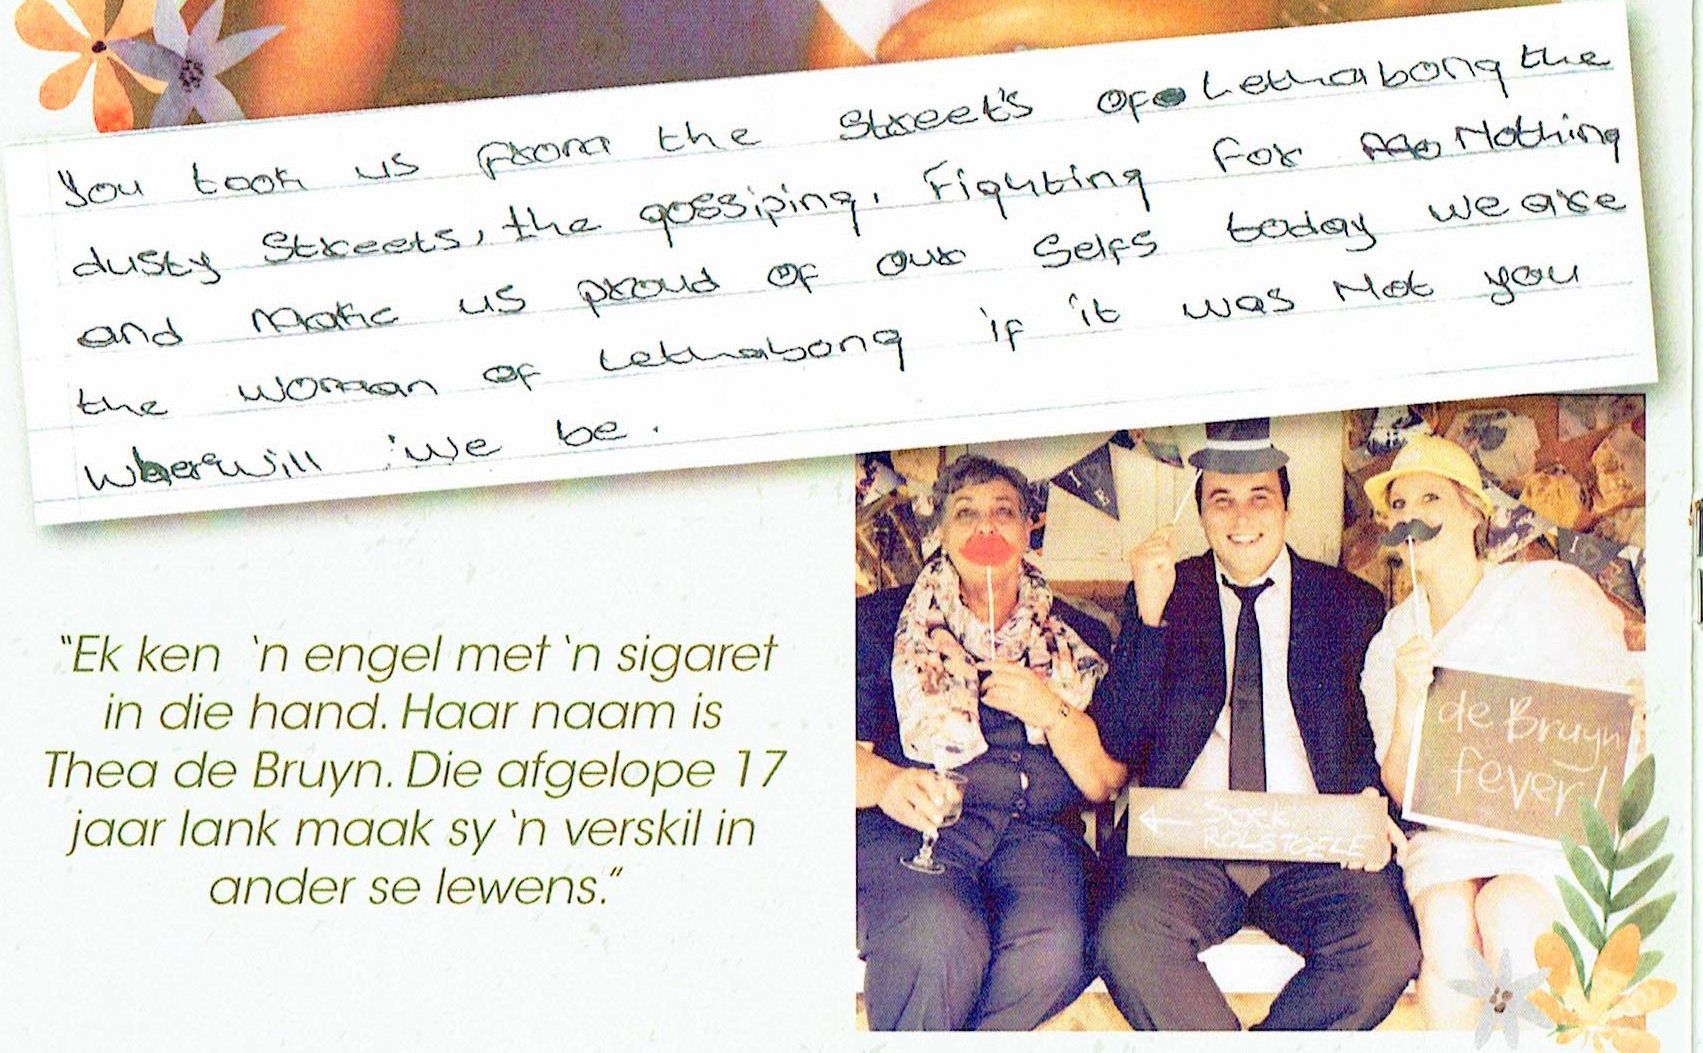 You took us from the Street's of Lethabong the
dusty Streets, the gossiping, Fighting For Nothing
and Make us proud of our Selfs today we are
the woman of Lethabong if it was Not you
wherwill we be.
"Ek ken 'n engel met 'n sigaret
in die hand. Haar naam is
Thea de Bruyn. Die afgelope 17
jaar lank maak sy 'n verskil in
ander se lewens."
de Bruyn
fever!
← SOEK
ROLSTOELE